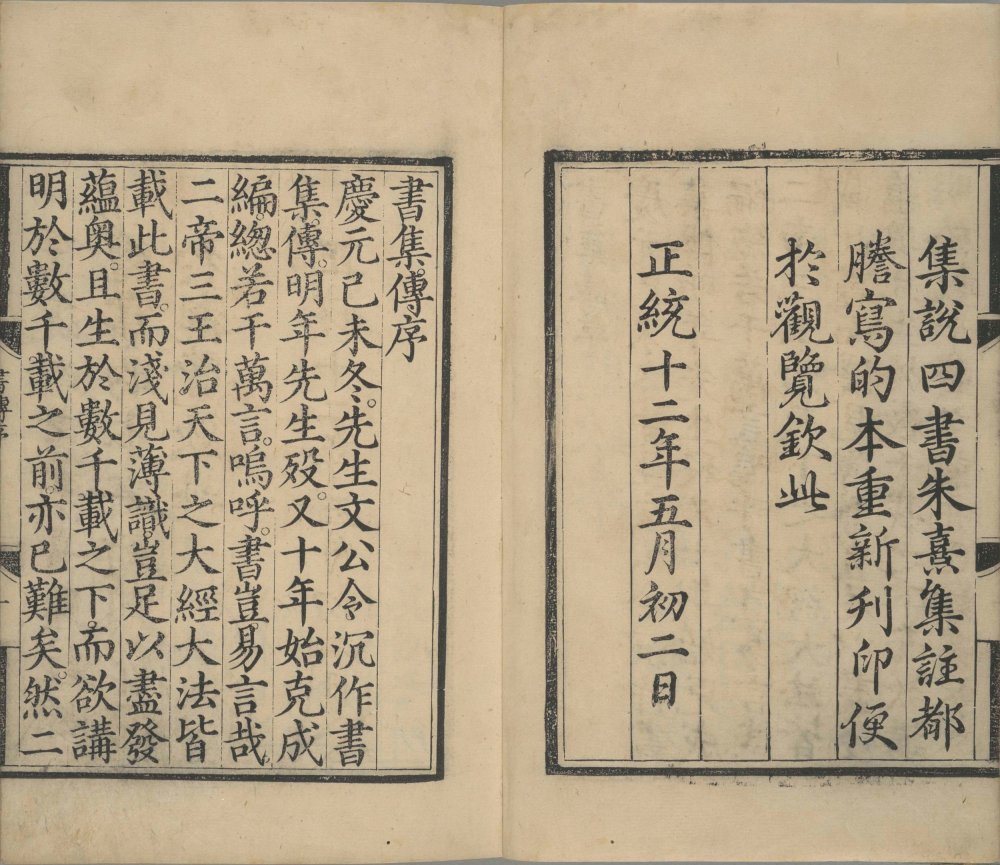 集說四書朱熹集註都
謄寫的本重新刋印便
於觀覽欽此
正統十二年五月初二日
書集傳序
慶元己未冬。先生文公令沉作書
集傳。明年先生歿。又十年始克成
編。緫若干萬言。嗚呼。書豈易言哉。
二帝三王治天下之大經大法皆
載此書。而淺見薄識。豈足以盡發
蘊奧。且生於數千載之下。而欲講
明於數千載之前。亦已難矣。然二